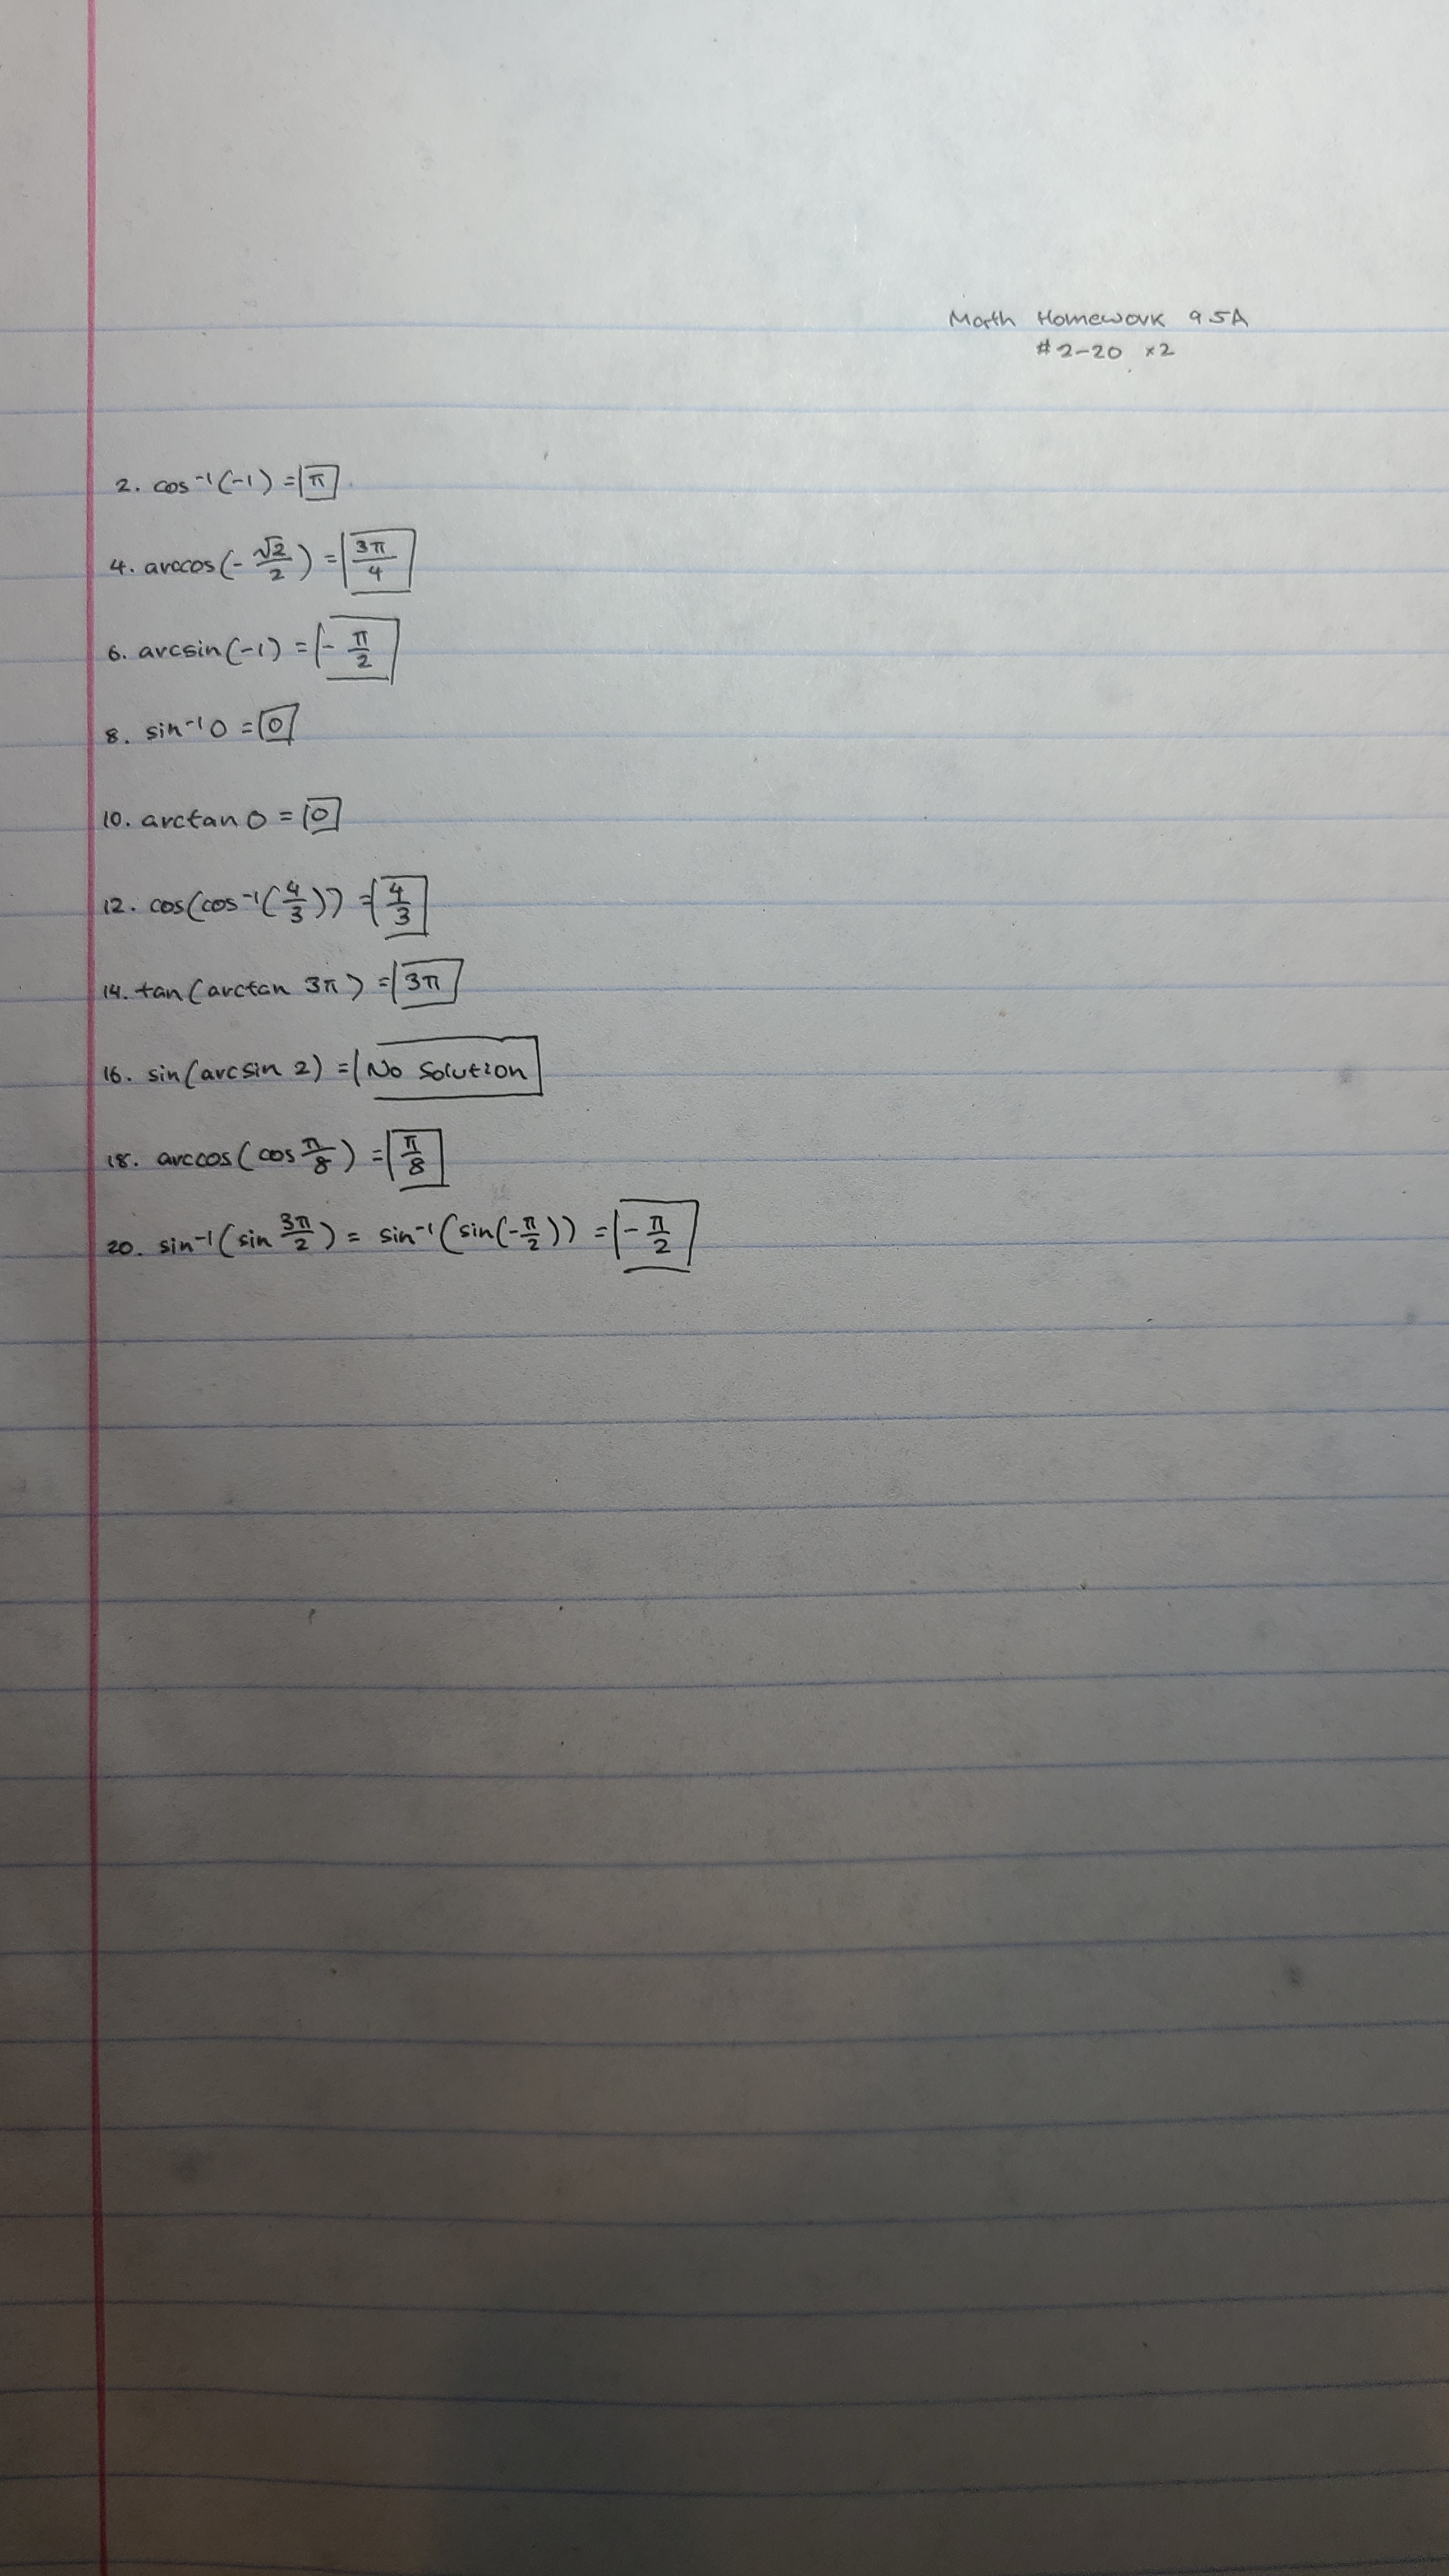 Math Homework 9.5A
#2-20 x2
2. cos⁻¹(-1) = π
4. arccos(-√2/2) = 3π/4
6. arcsin(-1) = -π/2
8. sin⁻¹0 = 0
10. arctan 0 = 0
12. cos(cos⁻¹(4/3)) = 4/3
14. tan(arctan 3π) = 3π
16. sin(arcsin 2) = No Solution
18. arccos(cos π/8) = π/8
20. sin⁻¹(sin 3π/2) = sin⁻¹(sin(-π/2)) = -π/2